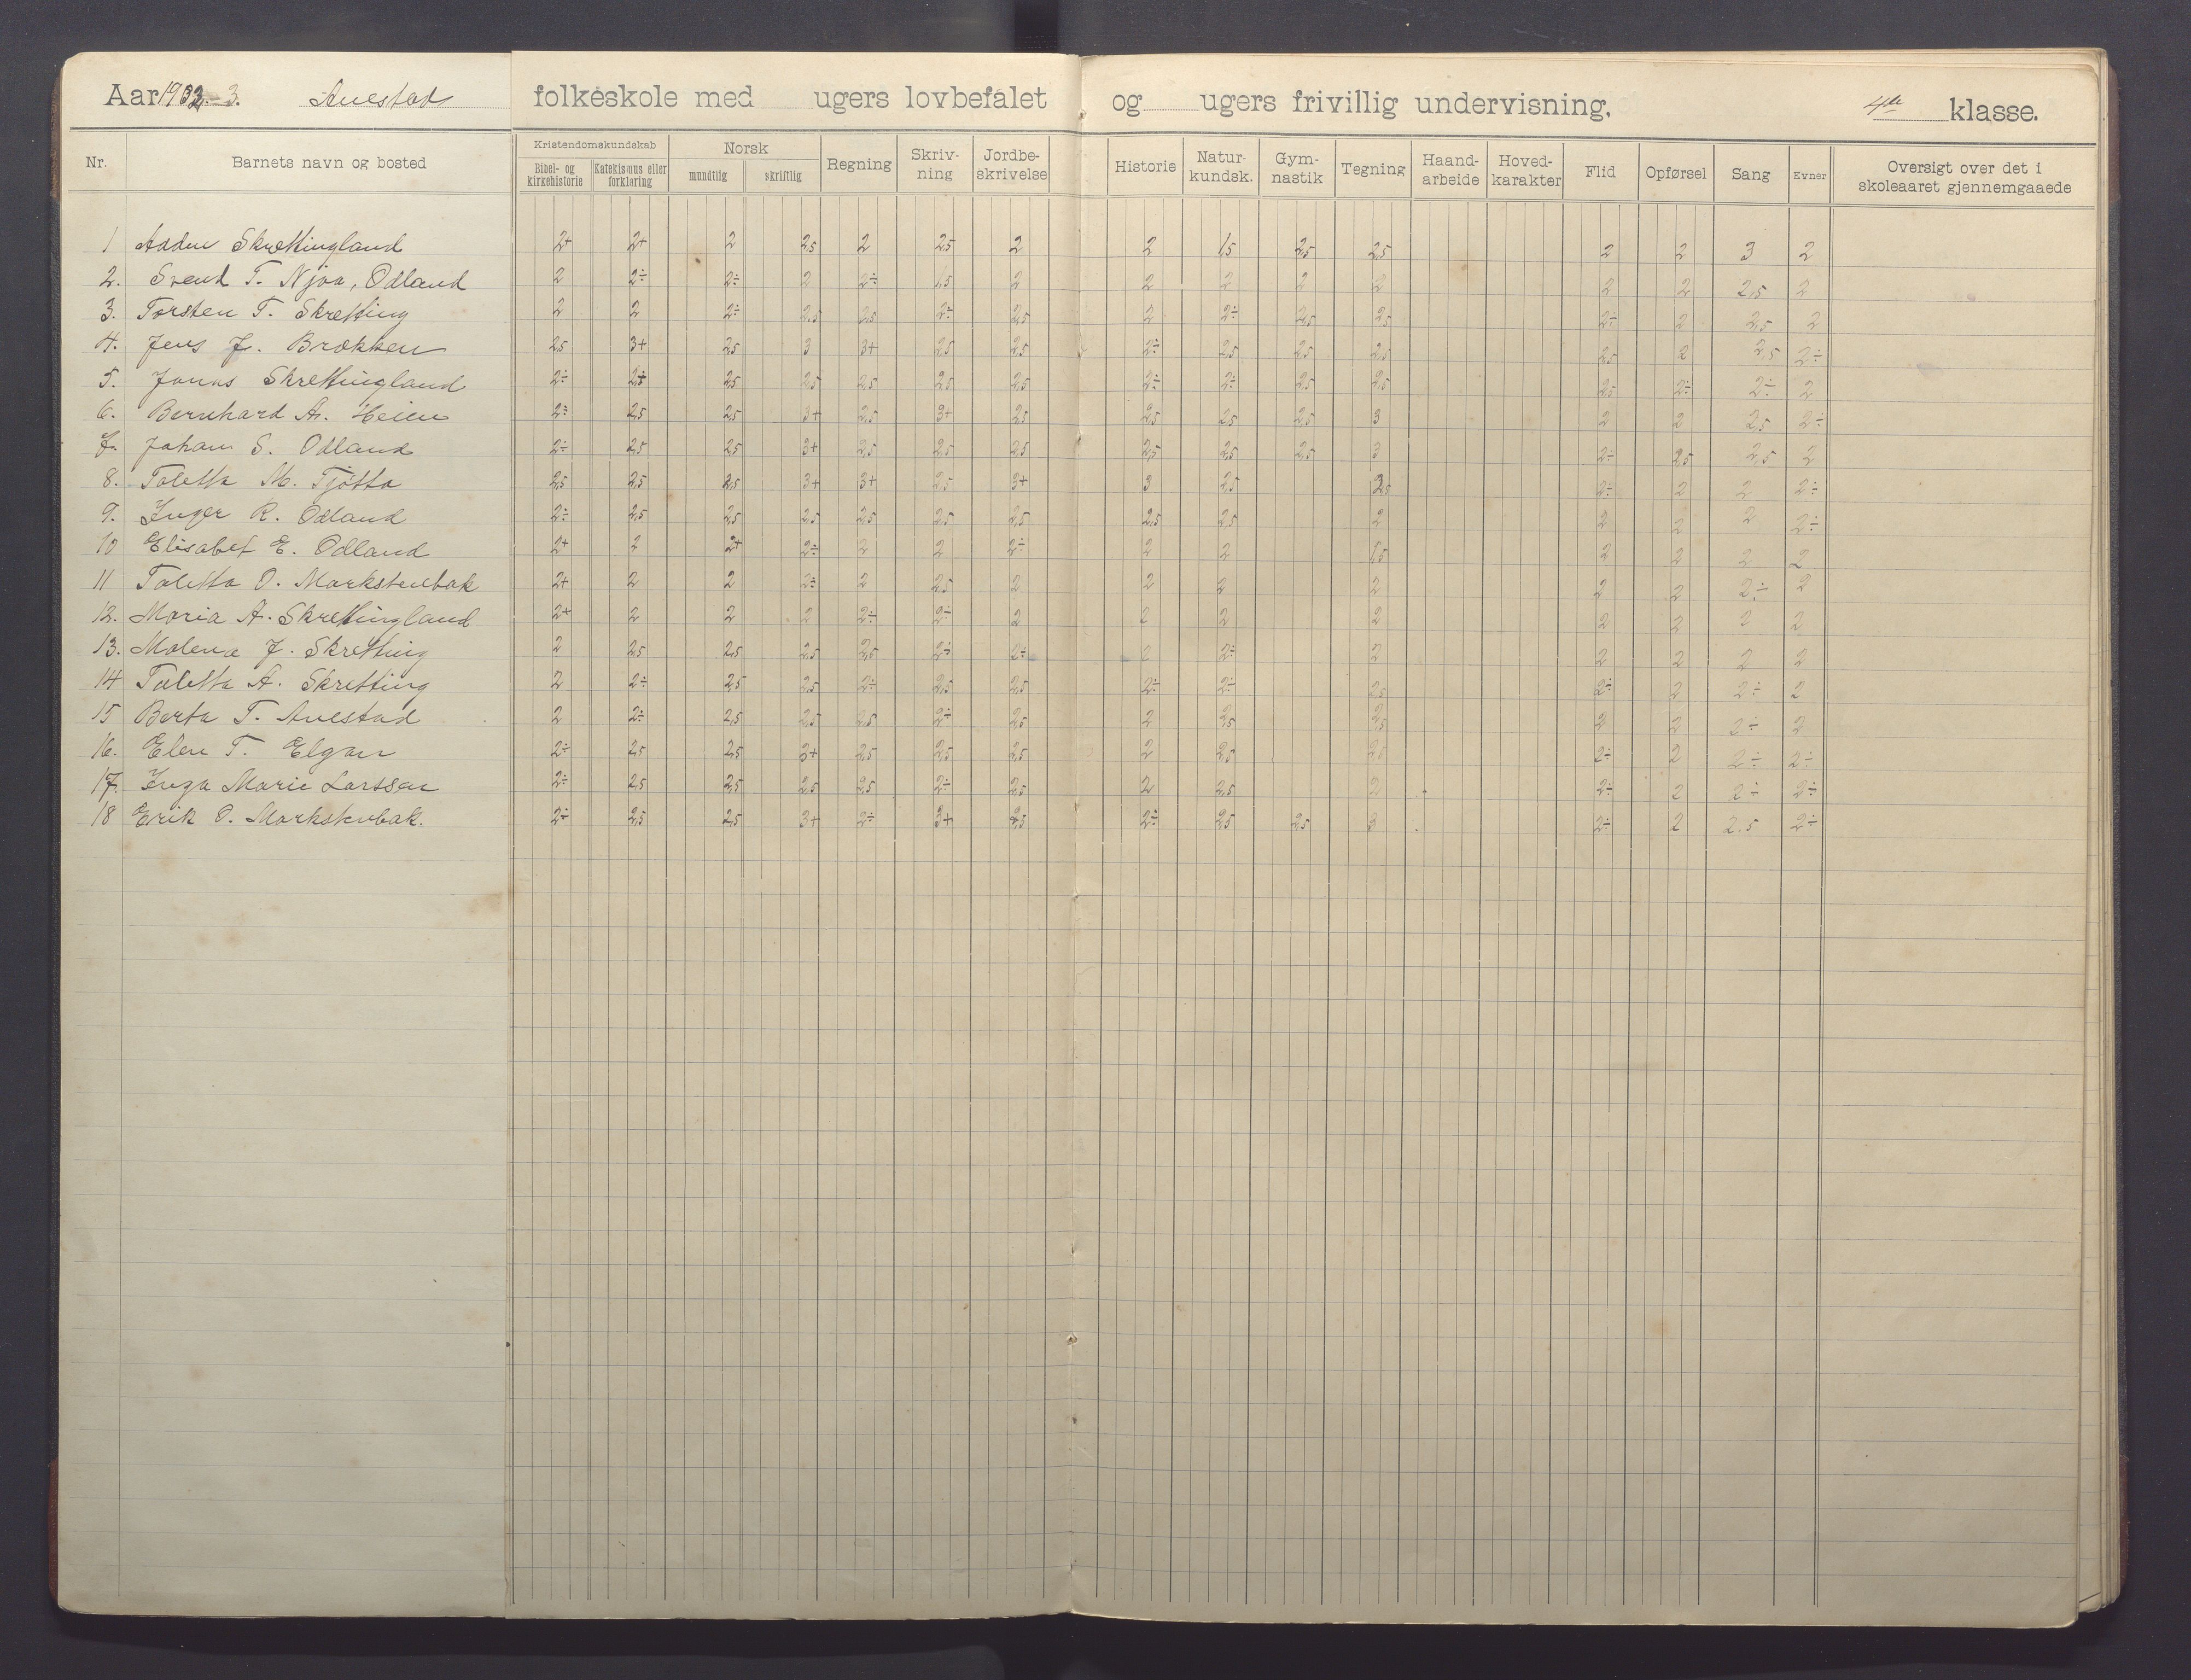 Aar 1902-3. Auestad folkeskole med ugers lovbefalet og ugers frivillig undervisning. 4de klasse.
Nr. Barnets navn og bosted Kristendomskundskab Bibel- og kirkehistorie Katekismus eller forklaring Norsk mundtlig skriftlig Regning Skriv-ning Jordbe-skrivelse Historie Natur-kundsk. Gym-nastik Tegning Haand-arbeide Hoved-karakter Flid Opførsel Sang Evner Oversigt over det i skoleaaret gjennemgaaede
1 Skrettingland 2+ 2+ 2 2,5 2 2,5 2 2 1,5 2,5 2,5 2 2 3 2
2. Svend T. Njaa, Odland 2 2÷ 2÷ 2 2÷ 1,5 2 2 2 2 2 2 2 2,5 2
3. Torsten T. Skretting 2 2 2÷ 2,5 2,5 2÷ 2,5 2 2÷ 2,5 2,5 2÷ 2 2,5 2
4. Jens J. Brækken 2,5 3+ 2,5 3 3+ 2,5 2,5 2÷ 2,5 2,5 2,5 2,5 2 2,5 2÷
5. Jonas Skrettingland 2÷ 2÷ 2,5 2,5 2,5 2,5 2,5 2÷ 2÷ 2,5 2,5 2,5 2÷ 2÷ 2
6. Bernhard A. Heien 2÷ 2,5 2,5 3+ 2,5 3+ 2,5 2,5 2,5 2,5 3 2 2 2,5 2÷
7. Johan S. Odland 2÷ 2,5 2,5 3+ 2,5 2,5 2,5 2,5 2,5 2,5 3 2÷ 2,5 2,5 2
8. Taletta M. Tjøtta 2,5 2,5 2,5 3+ 3+ 2,5 3+ 3 2,5 2÷ 2 2 2÷
9. Inger R. Odland 2÷ 2,5 2,5 2,5 2,5 2,5 2,5 2,5 2,5 2 2 2 2 2÷
10 Elisabet E. Odland 2+ 2 2+ 2÷ 2 2 2÷ 2 2 1,5 2 2 2 2
11 Taletta O. Markstenbak 2+ 2 2 2÷ 2 2,5 2 2 2 2 2 2 2÷ 2
12. Maria A. Skrettingland 2+ 2 2 2 2÷ 2÷ 2 2 2 2 2 2 2 2
13. Malena J. Skretting 2 2,5 2,5 2,5 2,5 2÷ 2÷ 2 2÷ 2 2 2 2 2
14 Taletta A. Skretting 2 2÷ 2,5 2,5 2÷ 2,5 2,5 2÷ 2÷ 2,5 2÷ 2 2÷ 2
15 Berta T. Auestad 2 2÷ 2,5 2,5 2,5 2÷ 2,5 2 2,5 2,5 2 2 2÷ 2
16. Elen T. Elgan 2÷ 2,5 2,5 3+ 2,5 2,5 2,5 2 2,5 2,5 2÷ 2 2÷ 2÷
17. Inga Marie Larssen 2÷ 2,5 2,5 2,5 2,5 2÷ 2,5 2 2,5 2 2÷ 2 2÷ 2÷
18 Erik O. Markstenbak. 2÷ 2,5 2,5 3+ 2÷ 3+ 2,5 2÷ 2,5 2,5 3 2÷ 2 2.5 2÷